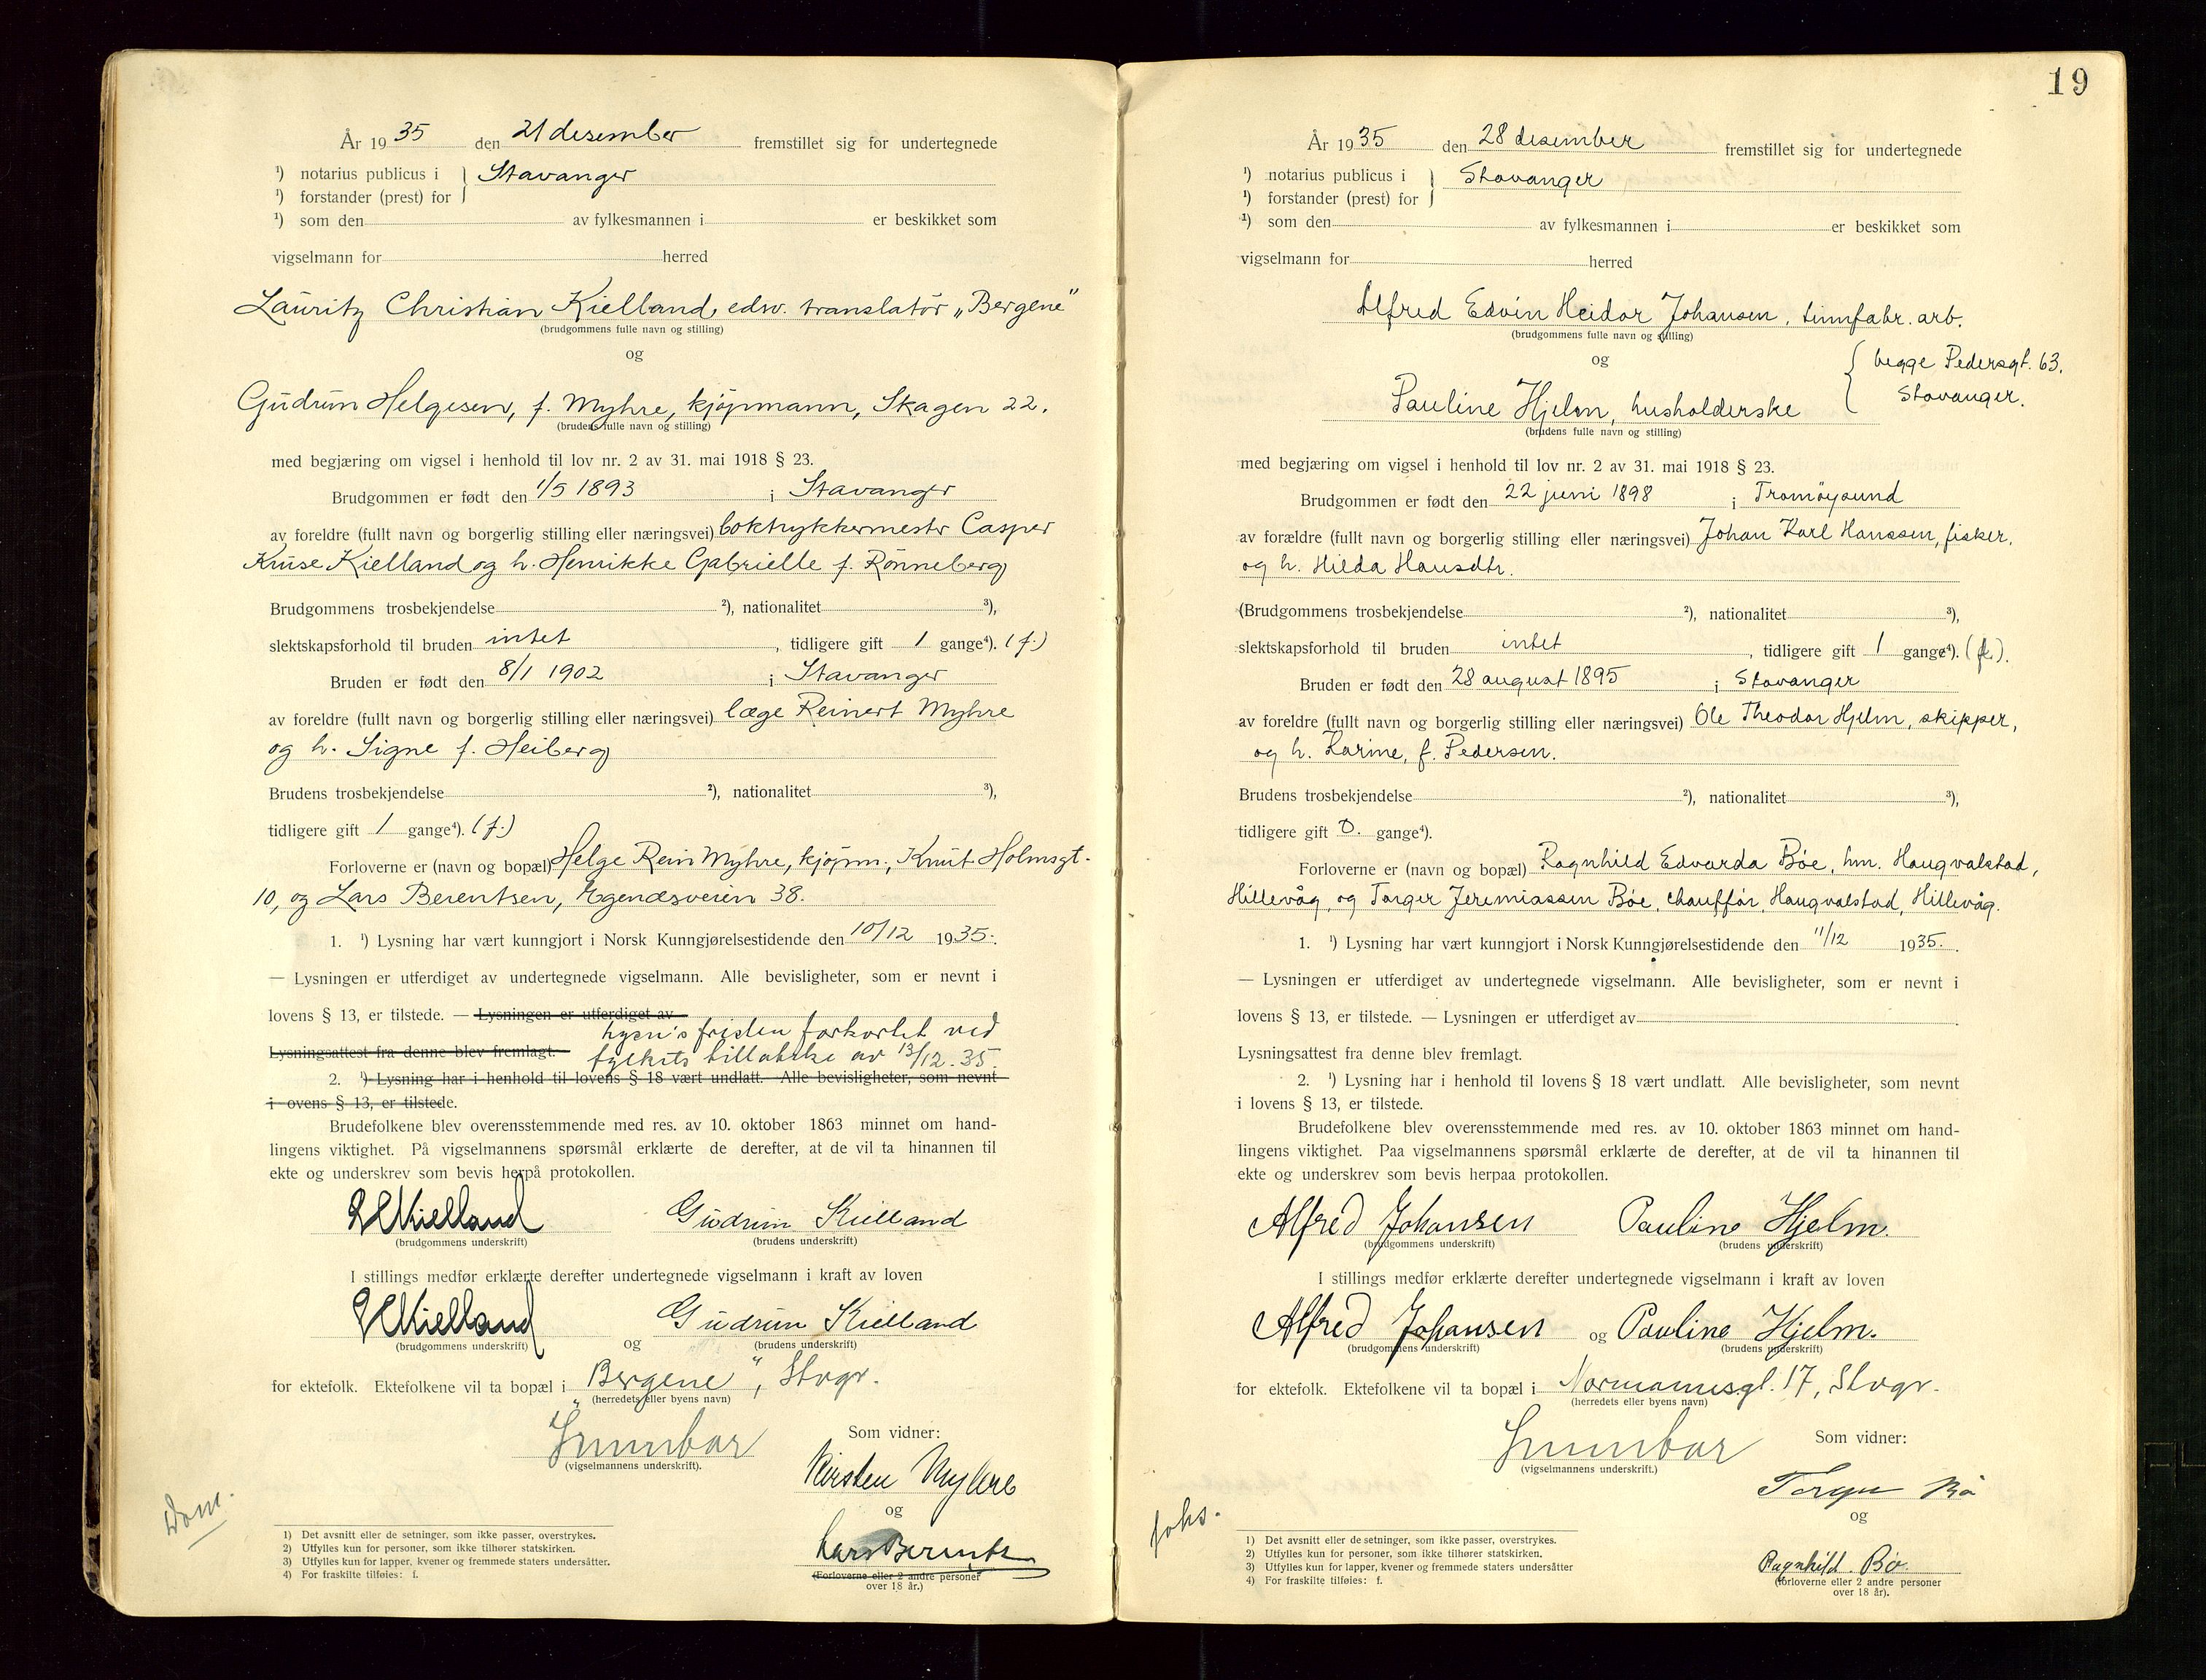 År 1935 den 21 desember fremstillet sig for undertegnede
¹) notarius publicus i } Stavanger
¹) forstander (prest) for
¹) som den av fylkesmannen i er beskikket som
vigselmann for herred
Lauritz Christian Kielland, edsv. translatør „Bergene"
(brudgommens fulle navn og stilling)
og
Gudrun Helgesen, f. Myhre, kjøpmann, Skagen 22.
(brudens fulle navn og stilling)
med begjæring om vigsel i henhold til lov nr. 2 av 31. mai 1918 § 23.
Brudgommen er født den 1/5 1893 i Stavanger
av foreldre (fullt navn og borgerlig stilling eller næringsvei) boktrykkermestr Casper
Kruse Kielland og h. Henrikke Gabrielle f. Rønneberg
Brudgommens trosbekjendelse ²), nationalitet ³),
slektskapsforhold til bruden intet, tidligere gift 1 gange⁴). (f.)
Bruden er født den 8/1 1902 i Stavanger
av foreldre (fullt navn og borgerlig stilling eller næringsvei) læge Reinert Myhre
og h. Signe f. Heiberg
Brudens trosbekjendelse ²), nationalitet ³),
tidligere gift 1 gange⁴). (f.)
Forloverne er (navn og bopæl) Helge Rein Myhre, kjøpm., Knut Holmsgt.
10, og Lars Berentsen, Egenesveien 38.
1. ¹) Lysning har vært kunngjort i Norsk Kunngjørelsestidende den 10/12 1935.
— Lysningen er utferdiget av undertegnede vigselmann. Alle bevisligheter, som er nevnt i
lovens § 13, er tilstede. — Lysningen er utferdiget av
lysn's fristen forkortet ved
Lysningsattest fra denne blev fremlagt. fylkets tillatelse av 13/12. 35.
2. ¹) Lysning har i henhold til lovens § 18 vært undlatt. Alle bevisligheter, som nevnt
i ovens § 13, er tilstede.
Brudefolkene blev overensstemmende med res. av 10. oktober 1863 minnet om hand-
lingens viktighet. På vigselmannens spørsmål erklærte de derefter, at de vil ta hinannen til
ekte og underskrev som bevis herpå protokollen.
LCKielland Gudrun Kielland
(brudgommens underskrift) (brudens underskrift)
I stillings medfør erklærte derefter undertegnede vigselmann i kraft av loven
LCKielland og Gudrun Kielland
(brudgommens underskrift) (brudens underskrift)
for ektefolk. Ektefolkene vil ta bopæl i „Bergene", Stvgr.
(herredets eller byens navn)
(vigselmannens underskrift).
Som vidner:
Kirsten Myhre
og
Lars Berentsen
(Forloverne eller 2 andre personer
over 18 år.)
Dom.
1) Det avsnitt eller de setninger, som ikke passer, overstrykes.
2) Utfylles kun for personer, som ikke tilhører statskirken.
3) Utfylles kun for lapper, kvener og fremmede staters undersåtter.
4) For fraskilte tilføies: f.
19
År 1935 den 28 desember fremstillet sig for undertegnede
¹) notarius publicus i } Stavanger
¹) forstander (prest) for
¹) som den av fylkesmannen i er beskikket som
vigselmann for herred
Alfred Edvin Heidar Johansen, tinnfabr. arb.
(brudgommens fulle navn og stilling)
og
{ begge Pedersgt. 63.
Stavanger.
Pauline Hjelm, husholderske
(brudens fulle navn og stilling)
med begjæring om vigsel i henhold til lov nr. 2 av 31. mai 1918 § 23.
Brudgommen er født den 22 juni 1898 i Tromøysund
av forældre (fullt navn og borgerlig stilling eller næringsvei) Johan Karl Hanssen, fisker,
og h. Hilda Hansdtr.
(Brudgommens trosbekjendelse ²), nationalitet ³),
slektskapsforhold til bruden intet, tidligere gift 1 gange⁴). (f.).
Bruden er født den 28 august 1895 i Stavanger
av foreldre (fullt navn og borgerlig stilling eller næringsvei) Ole Theodor Hjelm, skipper,
og h. Karine, f. Pedersen.
Brudens trosbekjendelse ²), nationalitet ³),
tidligere gift 0. gange⁴).
Forloverne er (navn og bopæl) Ragnhild Edvarda Bøe, hm. Haugvalstad,
Hillevåg, og Torger Jeremiassen Bøe, chauffør, Haugvalstad, Hillevåg.
1. ¹) Lysning har vært kunngjort i Norsk Kunngjørelsestidende den 11/12 1935.
— Lysningen er utferdiget av undertegnede vigselmann. Alle bevisligheter, som er nevnt i
lovens § 13, er tilstede. — Lysningen er utferdiget av
Lysningsattest fra denne blev fremlagt.
2. ¹) Lysning har i henhold til lovens § 18 vært undlatt. Alle bevisligheter, som nevnt
i lovens § 13, er tilstede.
Brudefolkene blev overensstemmende med res. av 10. oktober 1863 minnet om hand-
lingens viktighet. Paa vigselmannens spørsmål erklærte de derefter, at de vil ta hinannen til
ekte og underskrev som bevis herpaa protokollen.
Alfred Johansen Pauline Hjelm.
(brudgommens underskrift) (brudens underskrift)
I stillings medfør erklærte derefter undertegnede vigselmann i kraft av loven
Alfred Johansen og Pauline Hjelm.
(brudgommens underskrift) (brudens underskrift)
for ektefolk. Ektefolkene vil ta bopæl i Normannsgt. 17, Stvgr.
(herredets eller byens navn)
(vigselmannens underskrift.)
Som vidner:
Torger Bø
og
Ragnhild. Bø.
(forloverne eller 2 andre personer
over 18 år).
Johs.
1) Det avsnitt eller de setninger, som ikke passer, overstrykes.
2) Utfylles kun for personer, som ikke tilhører statskirken.
3) Utfylles kun for lapper, kvener og fremmede staters undersåtter
4) For fraskilte tilføies: f.